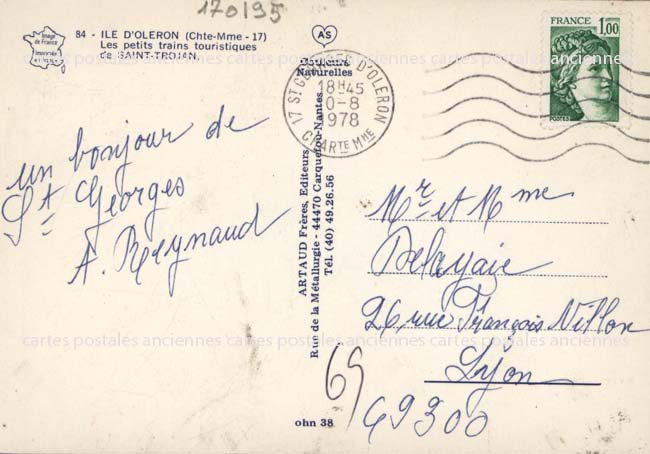 170195
Image
de France
84 - ILE D'OLERON (Chte-Mme - 17)
Les petits trains touristiques
de SAINT-TROJAN.
AS
Couleurs
Naturelles
FRANCE 1,00
POSTES
17 ST GEORGES D'OLERON
18H45
0-8
1978
CHARTE MME
un bonjour de
St Georges
A. Reynaud
ARTAUD Frères, Editeurs
Rue de la Métallurgie - 44470 Carquefou-Nantes
Tél. (40) 49.26.56
Mr et Mme
Delayaie
26 rue François Villon
Lyon
69300
69
ohn 38
cartes postales anciennes cartes postales anciennes cartes postales anciennes
cartes postales anciennes cartes postales anciennes cartes postales anciennes